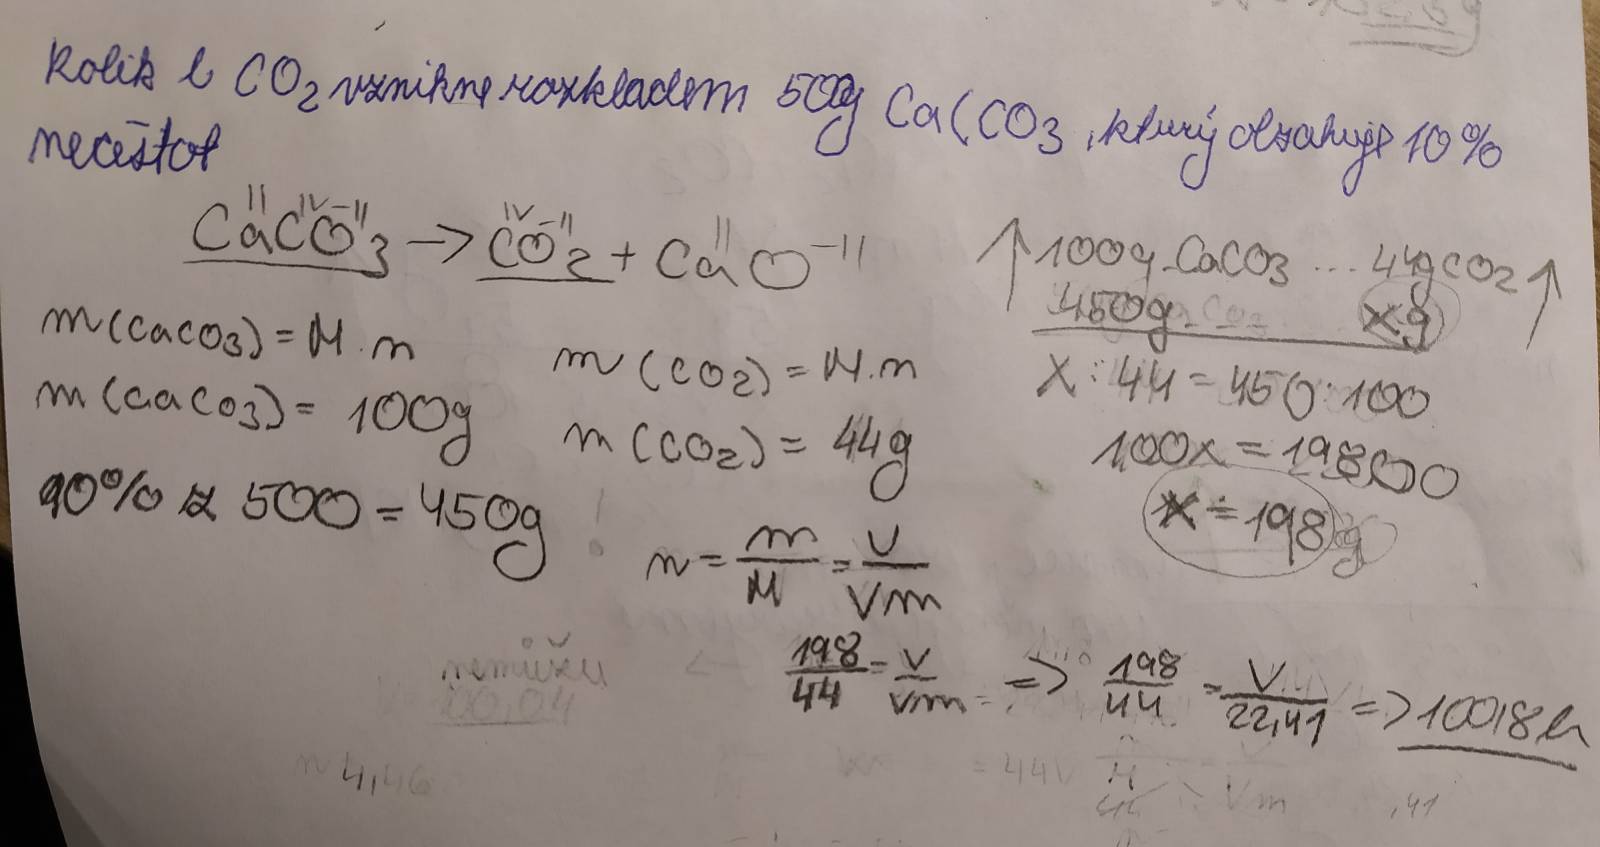 Kolik l CO2 vznikne rozkladem 500g Ca(CO3, který obsahuje 10%
nečistot
CaIICIVO-II3 -> CIVO-II2 + CaIIO-II
m(CaCO3) = M.n
m(CaCO3) = 100g
90% z 500 = 450g !
m(CO2) = M.n
m(CO2) = 44g
n = m/M = V/Vm
↑ 100g CaCO3 ... 44g CO2 ↑
450g ... xg
x : 44 = 450 : 100
100x = 19800
x = 198g
198/44 = V/Vm => 198/44 = V/22,41 => 100,8 l
nemůžu
100,04
n 4,46
= 44
Vm
,41